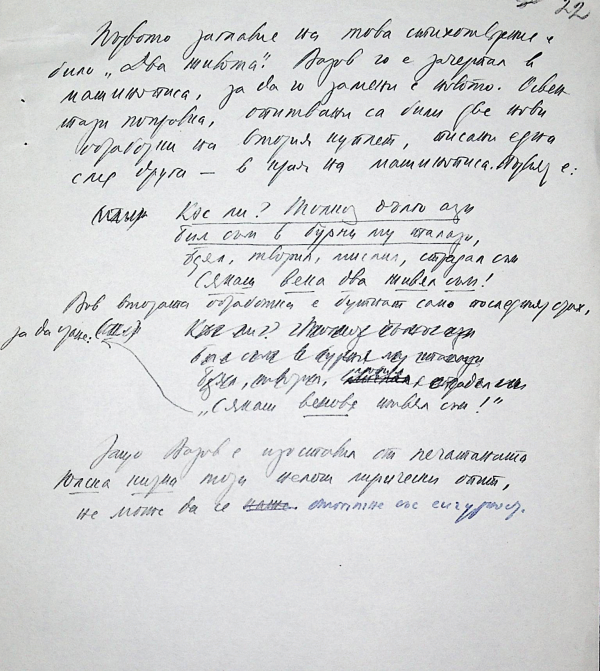 22
Първото заглавие на това стихотворение е
било „Два живота". Вазов го е зачертал в
машинописа, за да го замени с новото. Освен
тази поправка, опитвани са били две нови
обработки на втория куплет, писани една
след друга – в края на машинописа. Първата е:
Кос ли? Толкоз дълго аз
бил съм в бурни му талази,
бдял, творил, мислил, страдал съм
Сякаш века два живял съм!
Във втората обработка е бутнат само последният стих,
за да стане:
Кос ли? Толкоз дълго аз
бил съм в бурни му талази
бдял, творил, страдал съм
„Сякаш векове живял съм!"
Защо Вазов е изоставил от печатаната
Юлска китка този негов лирически опит,
не може да се със сигурност.